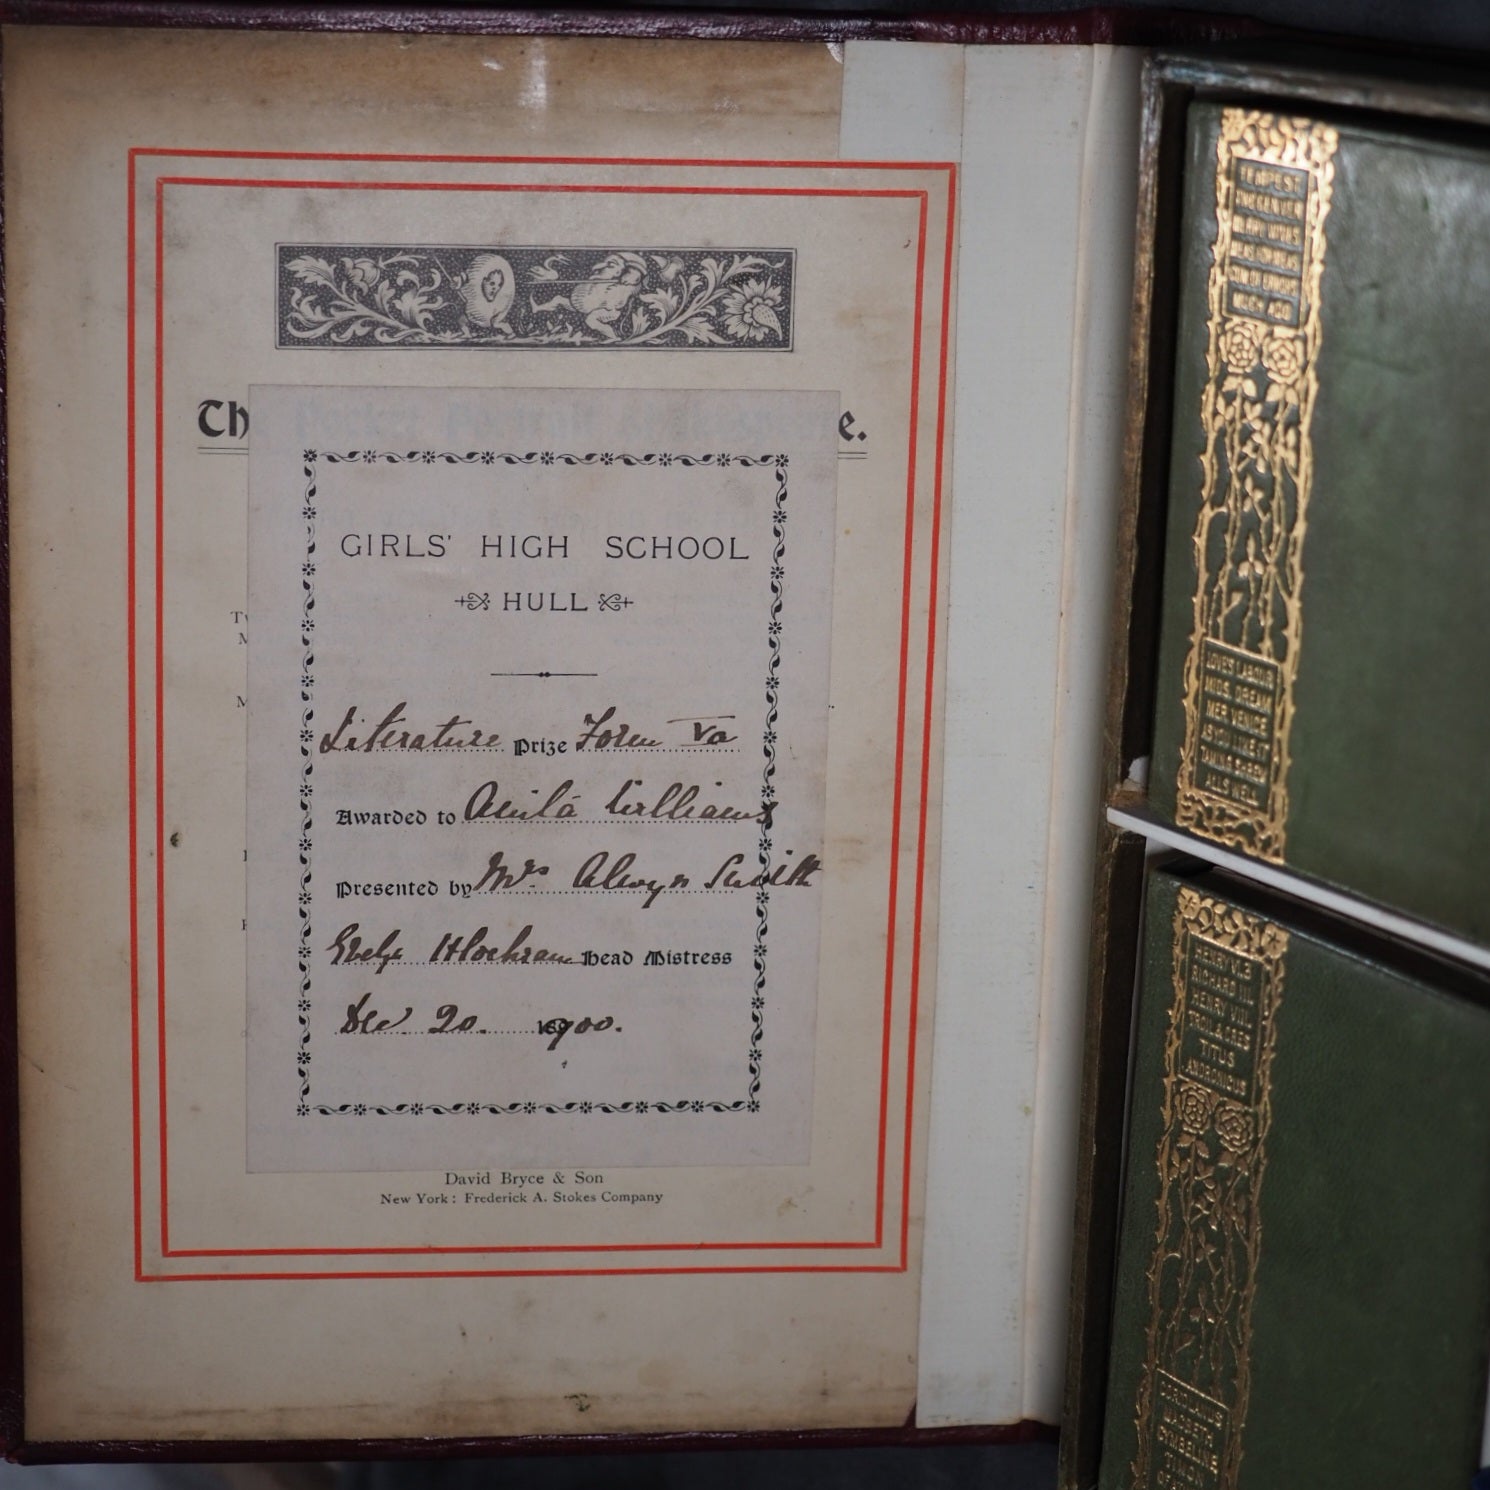 GIRLS' HIGH SCHOOL
HULL
Literature Prize Form Va
Awarded to Williams
Presented by Mrs Alwyn Smith
Head Mistress
Dec 20. 1900.
David Bryce & Son
New York: Frederick A. Stokes Company
TEMPEST
MERRY WIVES
MUCH ADO
LOVE'S LABOUR
MIDS. DREAM
MER. VENICE
AS YOU LIKE IT
TAMING SHREW
ALLS WELL
HENRY VI.3
RICHARD III.
HENRY VIII.
TROIL & CRES
TITUS
ANDRONICUS
CORIOLANUS
MACBETH
CYMBELINE
TIMON